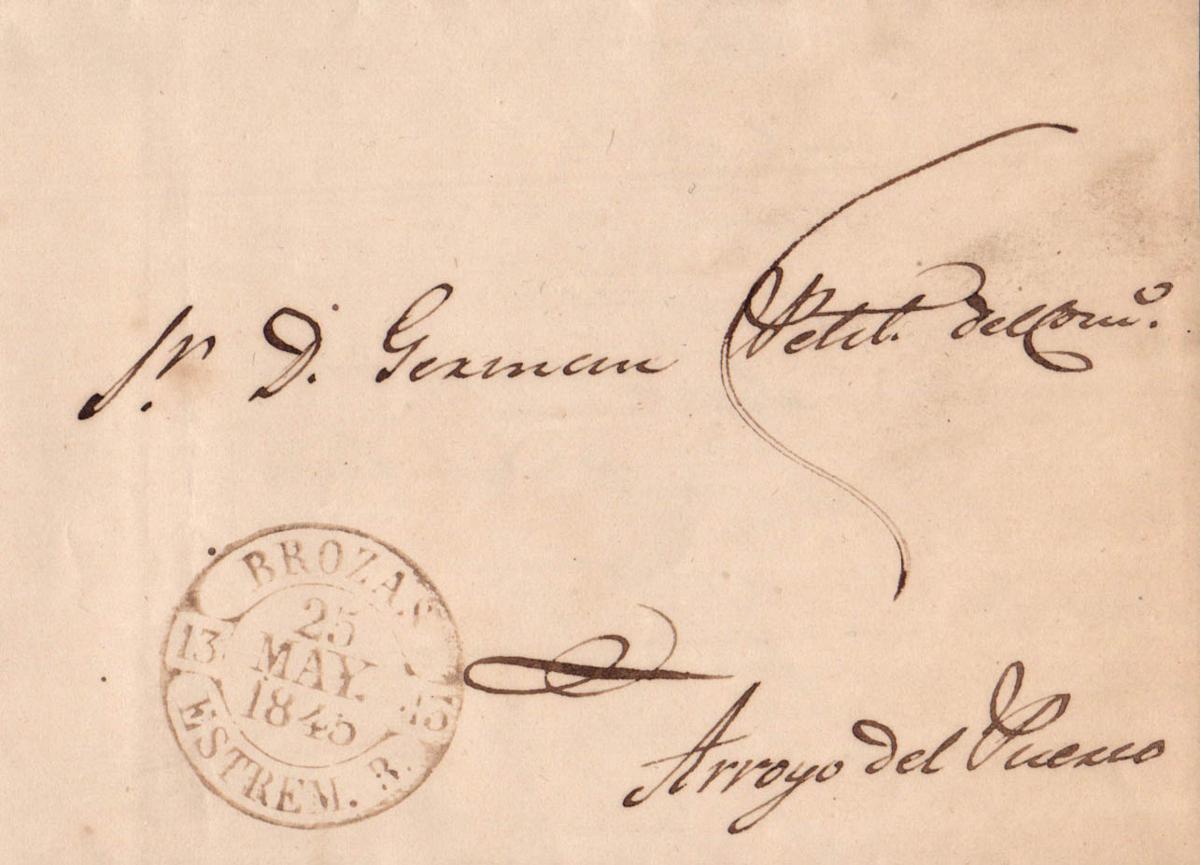 Sr. D. German Petit. del Como.
BROZAS
25
MAY.
1845
13 13
ESTREM. B.
Arroyo del Puerco